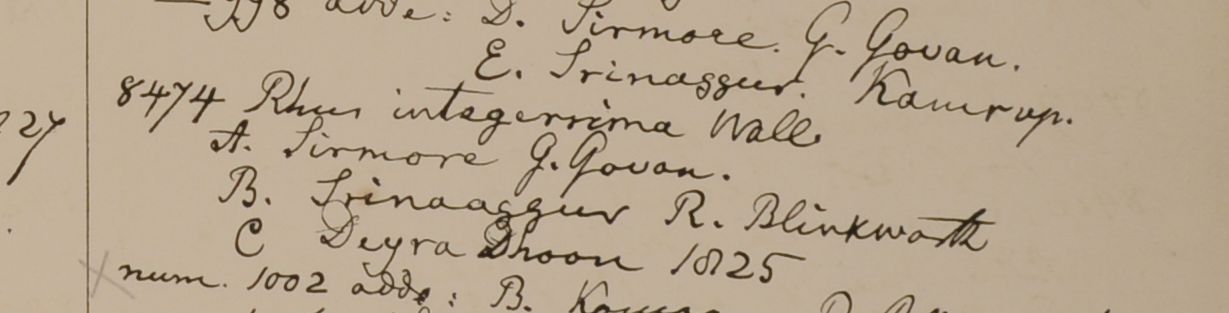 —998 adde: D. Sirmore. G. Govan.
E. Srinaggur. Kamrup.
8474 Rhus integerrima Wall.
A. Sirmore G. Govan.
B. Srinaaggur R. Blinkworth
C Deyra Dhoon 1825
num. 1002 adde: B.
27